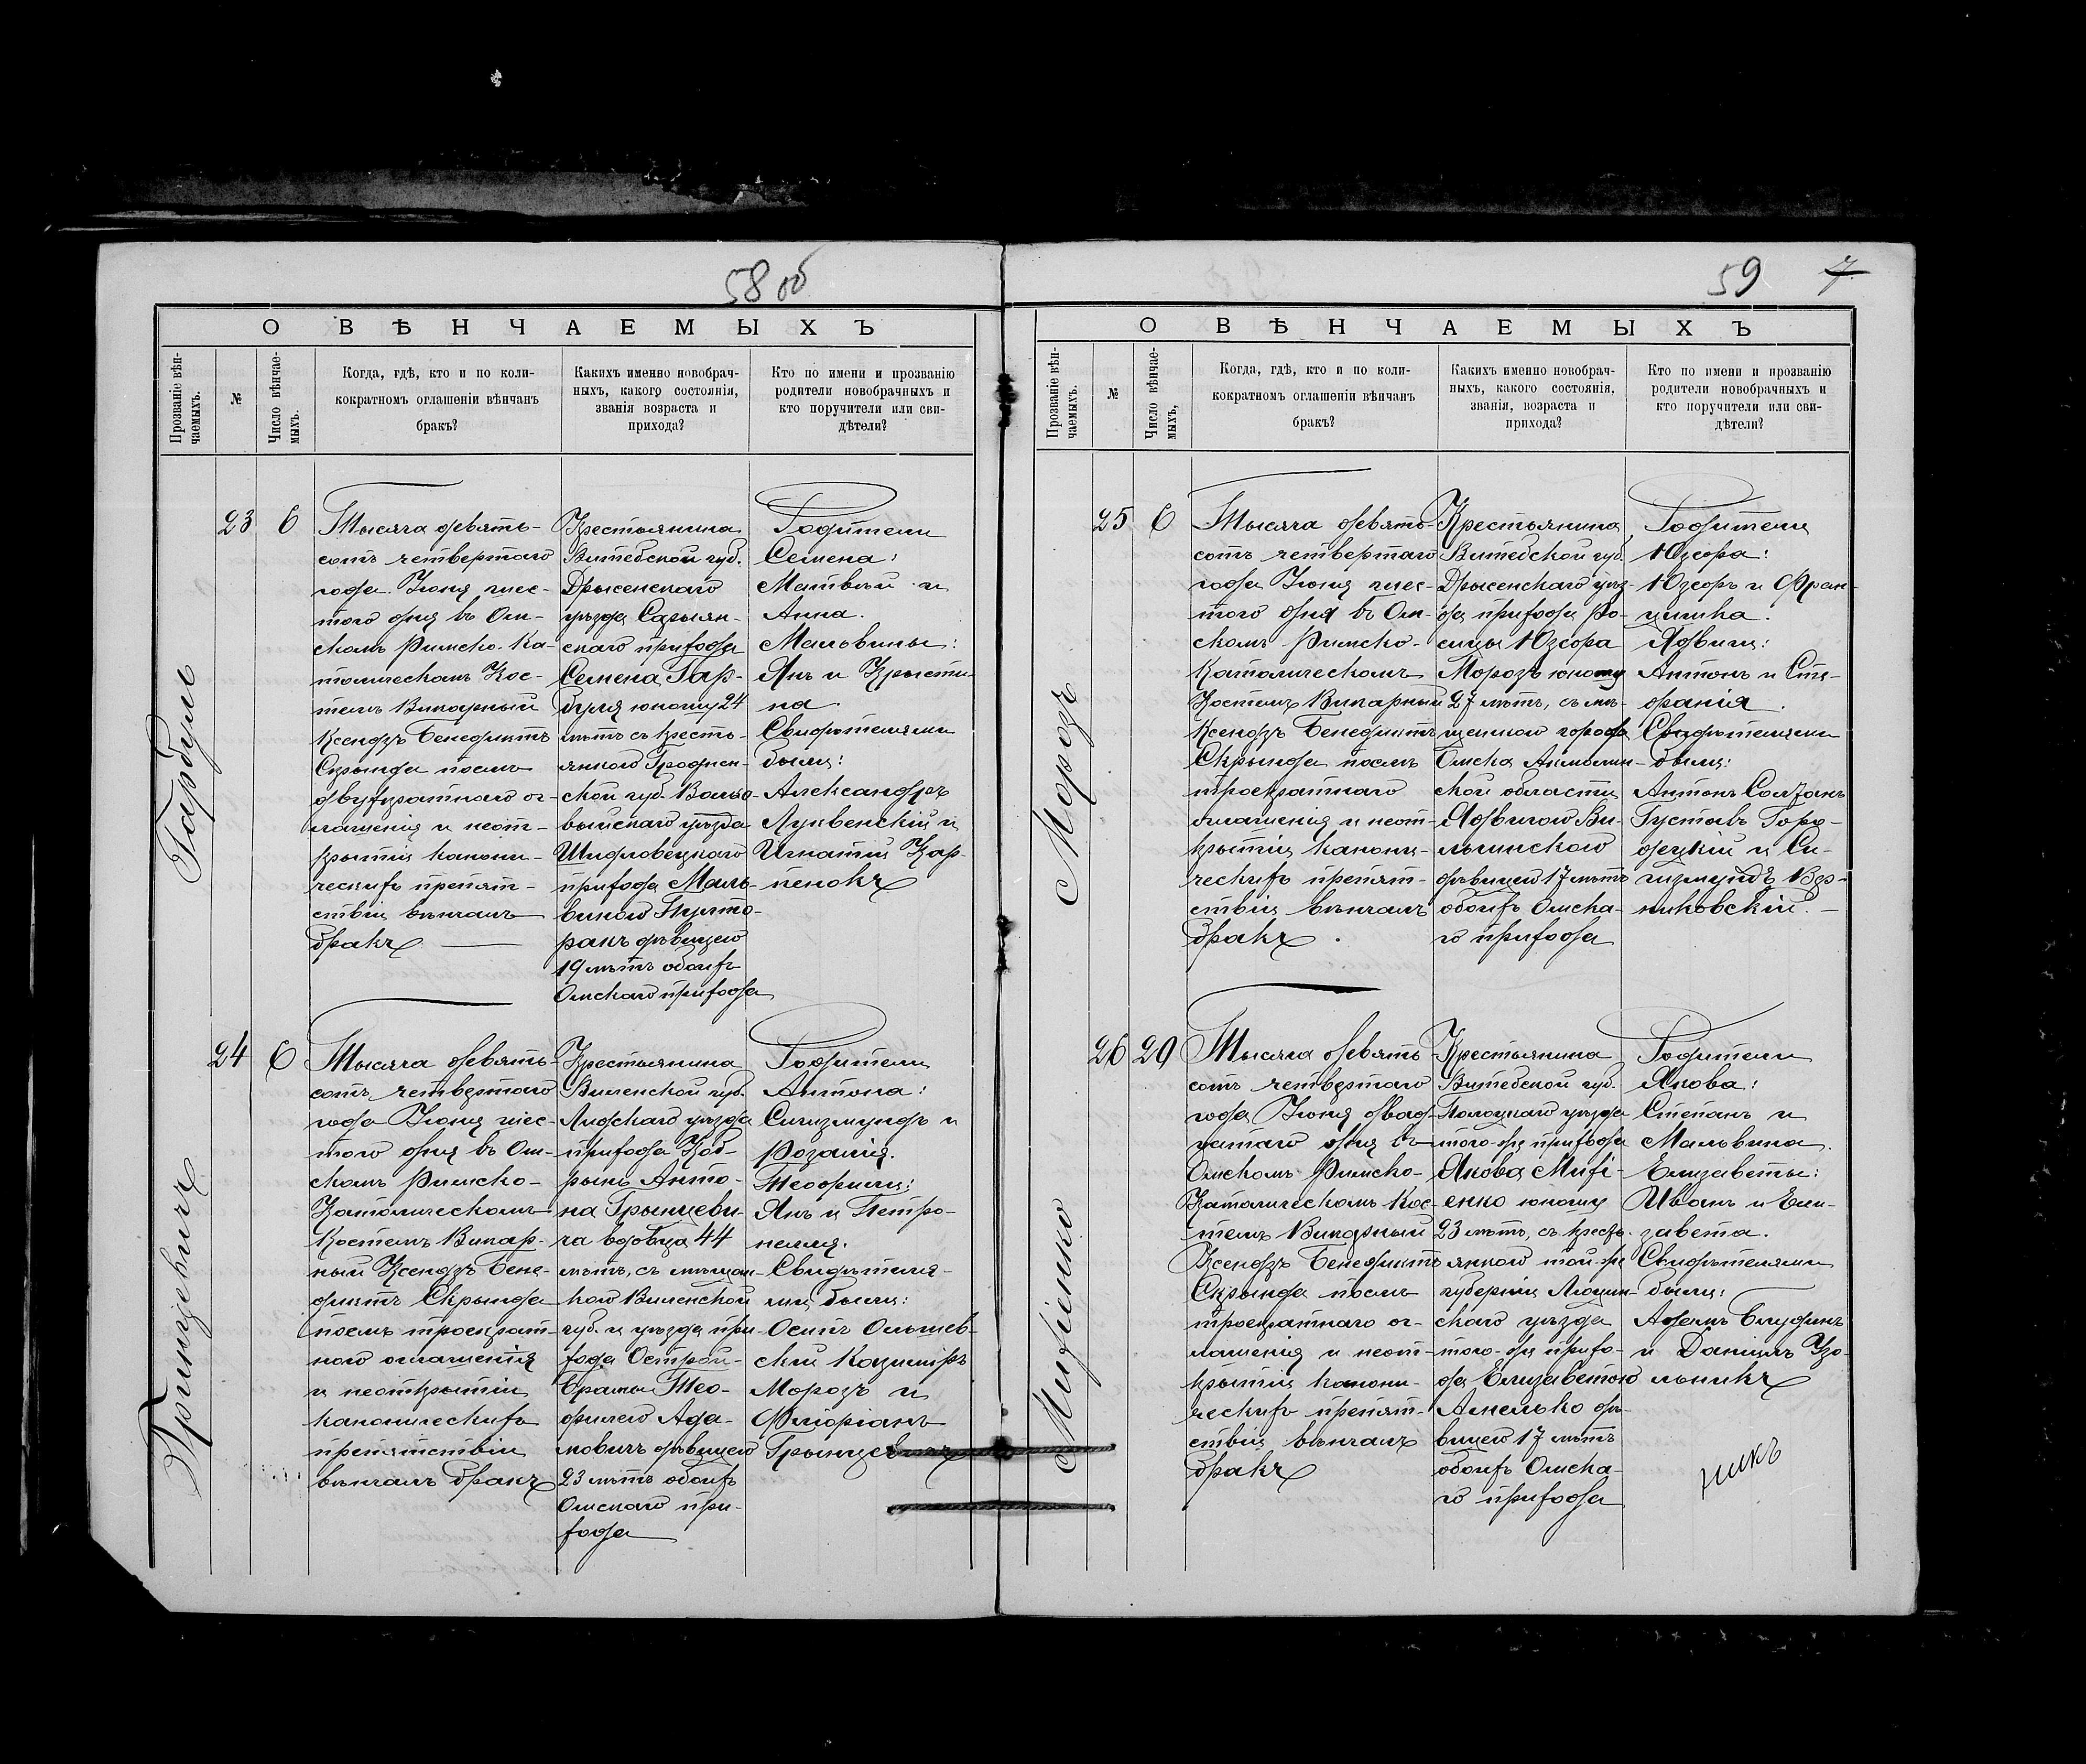 58 об
О ВѢНЧАЕМЫХЪ
Прозваніе вѣн-
чаемыхъ.
№
Число вѣнчае-
мыхъ.
Когда, гдѣ, кто и по коли-
кократномъ оглашеніи вѣнчанъ
бракъ?
Какихъ именно новобрач-
ныхъ, какого состоянія,
званія возраста и
прихода?
Кто по имени и прозванію
родители новобрачныхъ и
кто поручители или сви-
дѣтели?
Гарбуль
23
6
Тысяча девять-
сотъ четвертаго
года Іюня шес-
того дня въ Ом-
скомъ Римско-Ка-
толическомъ Кос-
телѣ Викарный
Ксендзъ Бенедиктъ
Скрында послѣ
двухкратнаго ог-
лашенія и неот-
крытія канони-
ческихъ препят-
ствій вѣнчалъ
бракъ
Крестьянина
Витебской губ.
Дрысенскаго
уѣзда Сарьян-
скаго прихода
Семена Гар-
буля юношу 24
лѣтъ съ кресть-
янкою Гроднен-
ской губ. Волко-
выйскаго уѣзда
Шидловецкаго
прихода Маль-
виною
дѣвицею
19 лѣтъ обоихъ
Омскаго прихода
Родители
Семена:
Матвѣй и
Анна.
Мальвины:
Янъ и Кристи-
на.
Свидѣтелями
были:
Александръ
Луквенскій и
Игнатій Кар-
пенокъ
Гринцевичъ
24
6
Тысяча девять-
сотъ четвертаго
года Іюня шес-
того дня въ Ом-
скомъ Римско-
Католическомъ
Костелѣ Викар-
ный Ксендзъ Бене-
диктъ Скрында
послѣ троекрат-
ного оглашенія
и неоткрытіи
каноническихъ
препятствій
вѣнчалъ бракъ
Крестьянина
Виленской губ.
Лидскаго уѣзда
прихода Жоб-
рынь Анто-
на Грынцеви-
ча вдовца 44
лѣтъ, съ мѣщан-
кою Виленской
губ. и уѣзда при-
хода Острой-
Брамы Тео-
филею Ада-
мовичъ дѣвицею
23 лѣтъ обоихъ
Омскаго при-
хода
Родители
Антона:
Сигизмундъ и
Розалія.
Теофили:
Янъ и Петро-
нелля.
Свидѣтеля-
ми были:
Осипъ Ольшев-
скій Казиміръ
Морозъ и
Флоріанъ
Грынцевичъ
59 7
О ВѢНЧАЕМЫХЪ
Прозваніе вѣн-
чаемыхъ.
№
Число вѣнчае-
мыхъ,
Когда, гдѣ, кто и по коли-
кократномъ оглашеніи вѣнчанъ
бракъ?
Какихъ именно новобрач-
ныхъ, какого состоянія,
званія, возраста и
прихода?
Кто по имени и прозванію
родители новобрачныхъ и
кто поручители или сви-
дѣтели?
Морозъ
25
6
Тысяча девять-
сотъ четвертаго
года Іюня шес-
того дня въ Ом-
скомъ Римско-
Католическомъ
Костелѣ Викарный
Ксендзъ Бенедиктъ
Скрында послѣ
троекратнаго
оглашенія и неот-
крытія канони-
ческихъ препят-
ствій вѣнчалъ
бракъ.
Крестьянина
Витебской губ.
Дрысенскаго уѣз-
да прихода Ро-
сицы Юзефа
Морозъ юношу
27 лѣтъ, съ мѣ-
щанкою города
Омска Акмолин-
ской области
Ядвигою Ви-
льчинскою
дѣвицею 17 лѣтъ
обоихъ Омска-
го прихода
Родители
Юзефа:
Юзефъ и Фран-
цишка.
Ядвиги:
Антонъ и Сте-
фанія.
Свидѣтелями
были:
Антонъ Солтанъ
Густавъ Горо-
децкій и Си-
гизмундъ Вер-
никовскій. —
Михіенко
26
29
Тысяча девять-
сотъ четвертаго
года Іюня двад-
цатаго дня въ
Омскомъ Римско-
Католическомъ Кос-
телѣ Викарный
Ксендзъ Бенедиктъ
Скрында послѣ
троекратнаго ог-
лашенія и неот-
крытія канони-
ческихъ препят-
ствій вѣнчалъ
бракъ
Крестьянина
Витебской губ.
Полоцкаго уѣзда
того-же прихода
Якова Михі-
енко юношу
23 лѣтъ, съ кресть-
янкою той-же
губерніи Люцин-
скаго уѣзда
того-же прихо-
да Елизаветою
Амелько дѣ-
вицею 17 лѣтъ
обоихъ Омска-
го прихода
Родители
Якова:
Степанъ и
Мальвина.
Елизаветы:
Иванъ и Ели-
завета.
Свидѣтелями
были:
Адамъ Блудинъ
и Даніилъ Узо-
льникъ
никъ